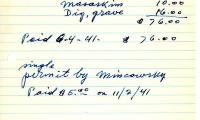 Maraskin 10.00
Dig, grave 16.00
$76.00
Paid 6-4-41. $76.00
single
permit by Mincowsky
Paid $5.00 on 11/2/41